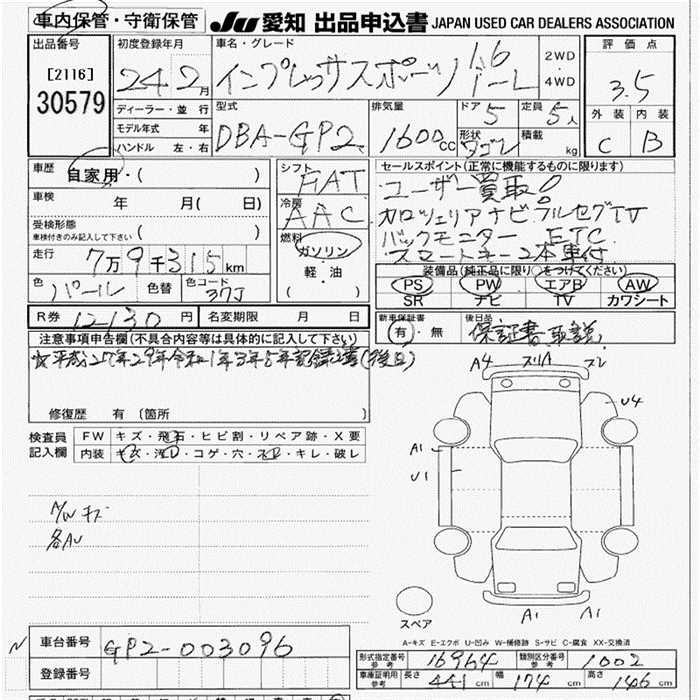 車内保管・守衛保管 JU 愛知 出品申込書 JAPAN USED CAR DEALERS ASSOCIATION
出品番号 初度登録年月 車名・グレード 2WD 4WD 評価点
[2116] 24年2月 インプレッサスポーツ 1.6 3.5
30579 ディーラー・並行 型式 排気量 ドア 5 定員 5人 外装 内装
モデル年式 年 DBA-GP2 1600cc 形状 ワゴン 積載 kg C B
ハンドル 左・右
車歴 自家用・( ) シフト FAT セールスポイント(正常に機能するものに限ります)
車検 年 月( 日) 冷房 AAC ユーザー買取
カロッツェリアナビフルセグTV
受検形態 ( ) 燃料 バックモニター ETC
車検付きのみ記入して下さい ガソリン スマートキー2本車付
走行 7万9千315km 軽・油 装備品(純正品に限り○をつけてください)
色 パール 色替 色コード 37J ( ) PS PW エアB AW
SR ナビ TV カワシート
R券 12130円 名変期限 月 日 新車保証書 後日品
注意事項申告欄(不具合内容等は具体的に記入して下さい) 有・無 保証書、取説
平成27年29年令和1年3年5年記録簿(後日)
A4 スリA スレ
修復歴 有 〔箇所 U4
検査員 FW キズ・飛石・ヒビ割・リペア跡・X要 A1
記入欄 内装 キズ・汚れ・コゲ・穴・スレ・キレ・破レ U1
A/Wキズ
各AU
スペア A1 A1
A-キズ E-エクボ U-凹み W-補修跡 S-サビ C-腐食 XX-交換済
N 車台番号 GP2-003096
形式指定番号 参考 16964 類別区分番号 参考 1002
登録番号 車庫証明用 参考 長さ 441cm 幅 174cm 高さ 146cm